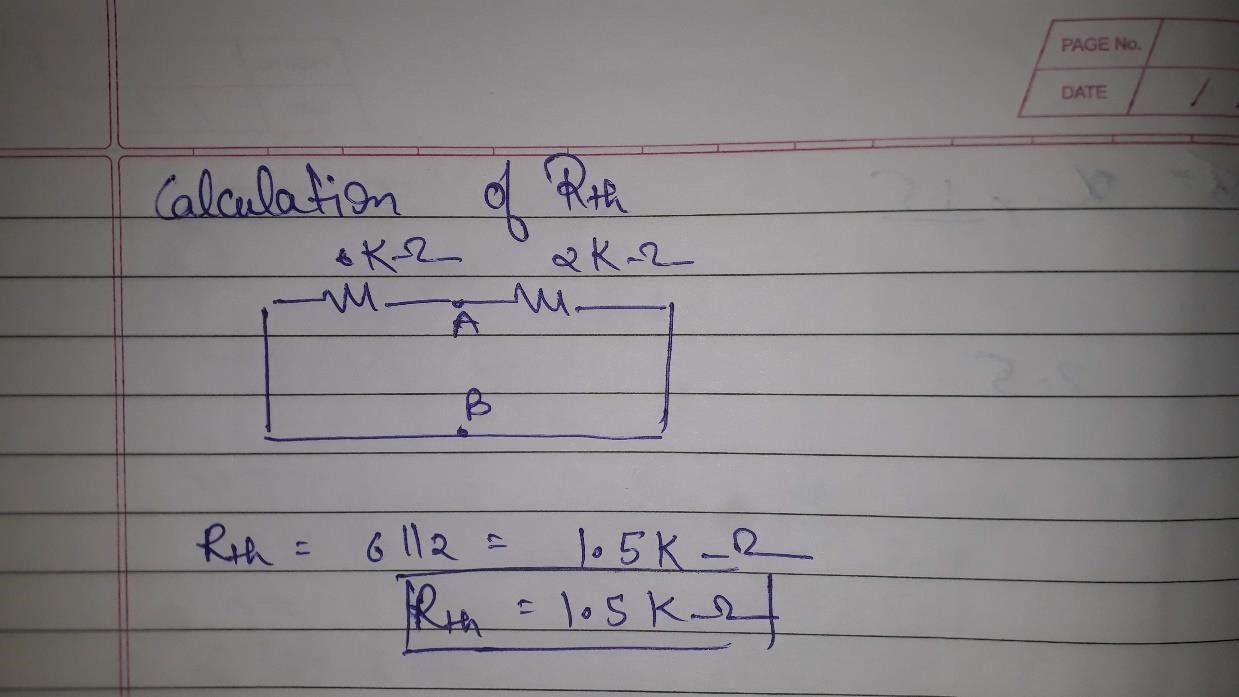 PAGE No.
DATE / /
Calculation of Rth
6K-Ω 2K-Ω
A
B
Rth = 6||2 = 1.5K-Ω
Rth = 1.5K-Ω